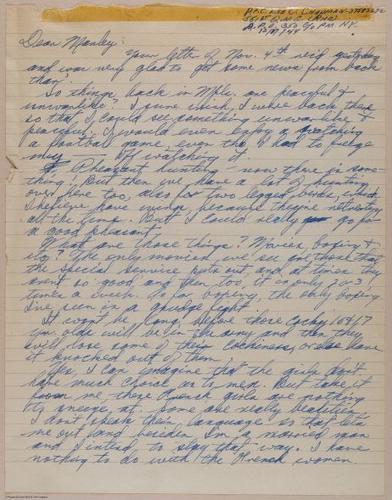 Dear Manley:
Your letter of Nov. 4th rec'd yesterday
and was very glad to get some news from back
So things back in Mpls. are peaceful &
unwarlike? I sure wish I were back there
so that I could see something unwarlike &
peaceful. I would even enjoy watching
a football game, even tho I had to
my watching it.
Pheasant hunting - now there is some-
thing! But then we have a lot of hunting
over here too, also for two legged
I believe are because they're retreating
all the time. But I could really go for
a good pheasant.
What are those things? Movies, boxing &
etc? The only movies we see are those that
the special service puts out and at times they
aren't so good and then too, it is only 2 or 3
times a week. As for boxing, the only boxing
I've seen is a grudge fight.
It won't be long before those cocky 16 & 17
yr. olds will be in the army and then they
will lose some of their cockiness, or else have
it knocked out of them.
Yes, I can imagine that the girls don't
have much choice as to men. But take it
from me, these French girls are nothing
to sneeze at. Some are really beauties.
I don't speak their language so that lets
me out and besides I'm a married man
and I intend to stay that way. I have
nothing to do with the French women.